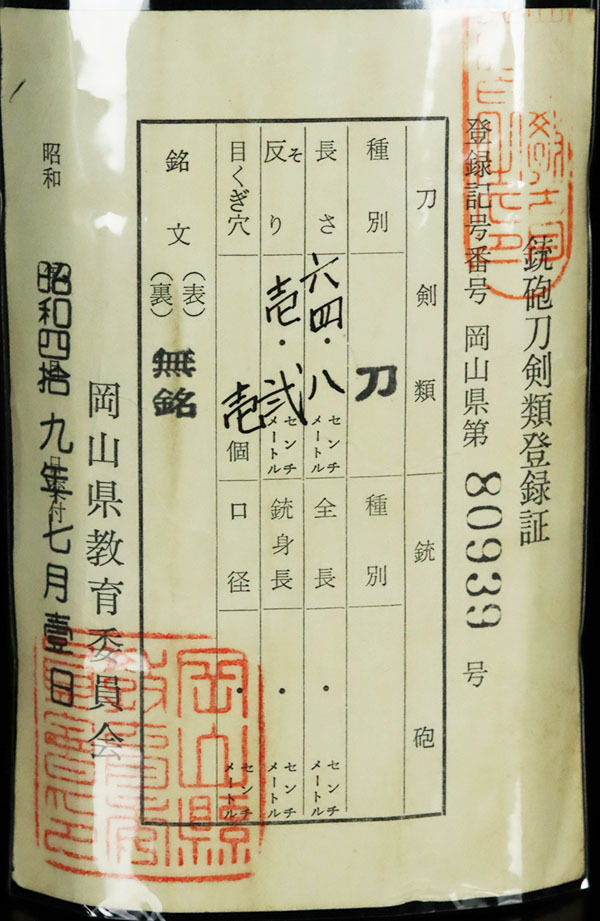 銃砲刀剣類登録証
登録記号番号 岡山県第 80939 号
刀剣類
銃砲
種別 刀
長さ 六四・八 センチメートル
反り そ 壱・弐 センチメートル
目くぎ穴 壱 個
銘文 (表) (裏) 無銘
種別
全長 ・ センチメートル
銃身長 ・ センチメートル
口径 ・ センチメートル
岡山県教育委員会
昭和 昭和四拾九年七月壹日
岡山縣